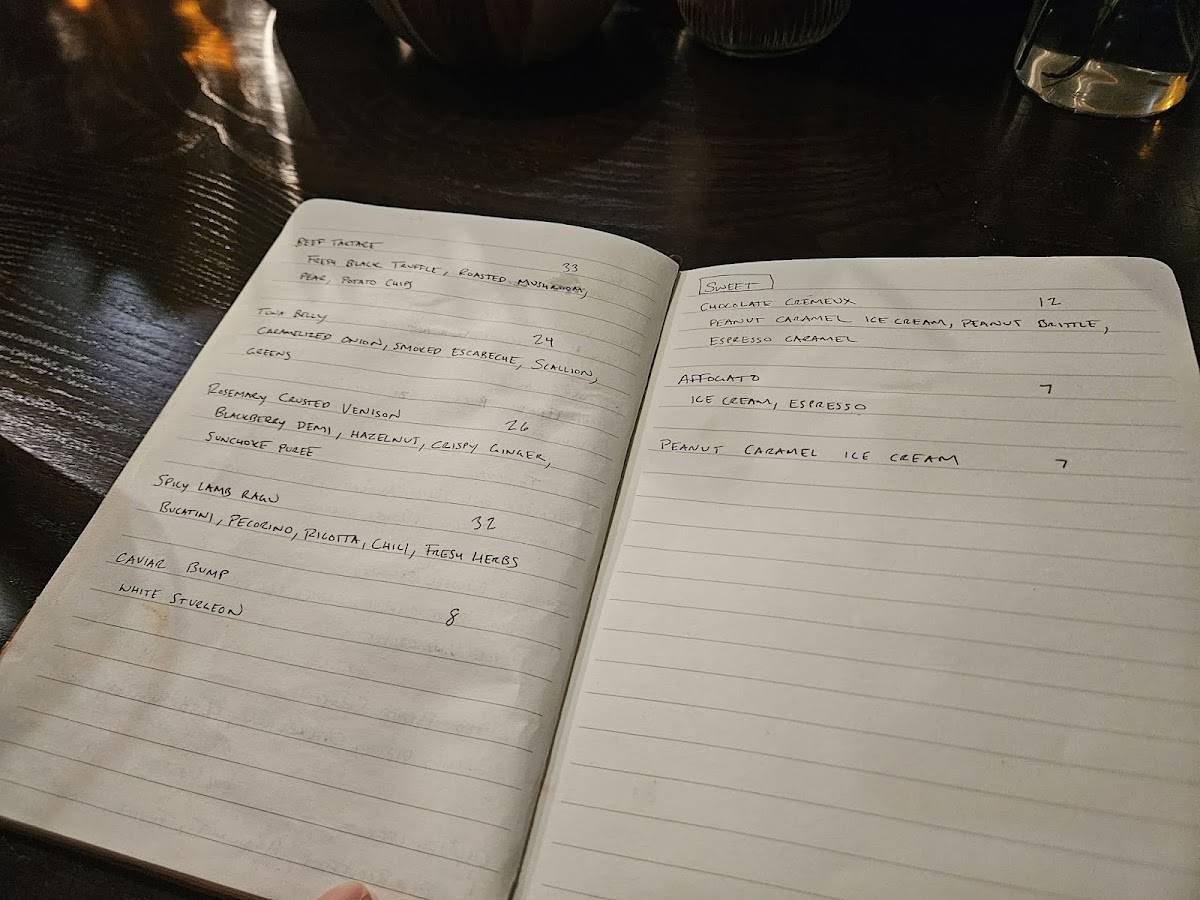 BEEF TARTARE 33
FRESH BLACK TRUFFLE, ROASTED MUSHROOM,
PEAR, POTATO CHIPS
TUNA BELLY 24
CARAMELIZED ONION, SMOKED ESCABECHE, SCALLION,
GREENS
ROSEMARY CRUSTED VENISON 26
BLACKBERRY DEMI, HAZELNUT, CRISPY GINGER,
SUNCHOKE PUREÉ
SPICY LAMB RAGU 32
BUCATINI, PECORINO, RICOTTA, CHILI, FRESH HERBS
CAVIAR BUMP
WHITE STURGEON 8
SWEET
CHOCOLATE CREMEUX 12
PEANUT CARAMEL ICE CREAM, PEANUT BRITTLE,
ESPRESSO CARAMEL
AFFOGATO 7
ICE CREAM, ESPRESSO
PEANUT CARAMEL ICE CREAM 7